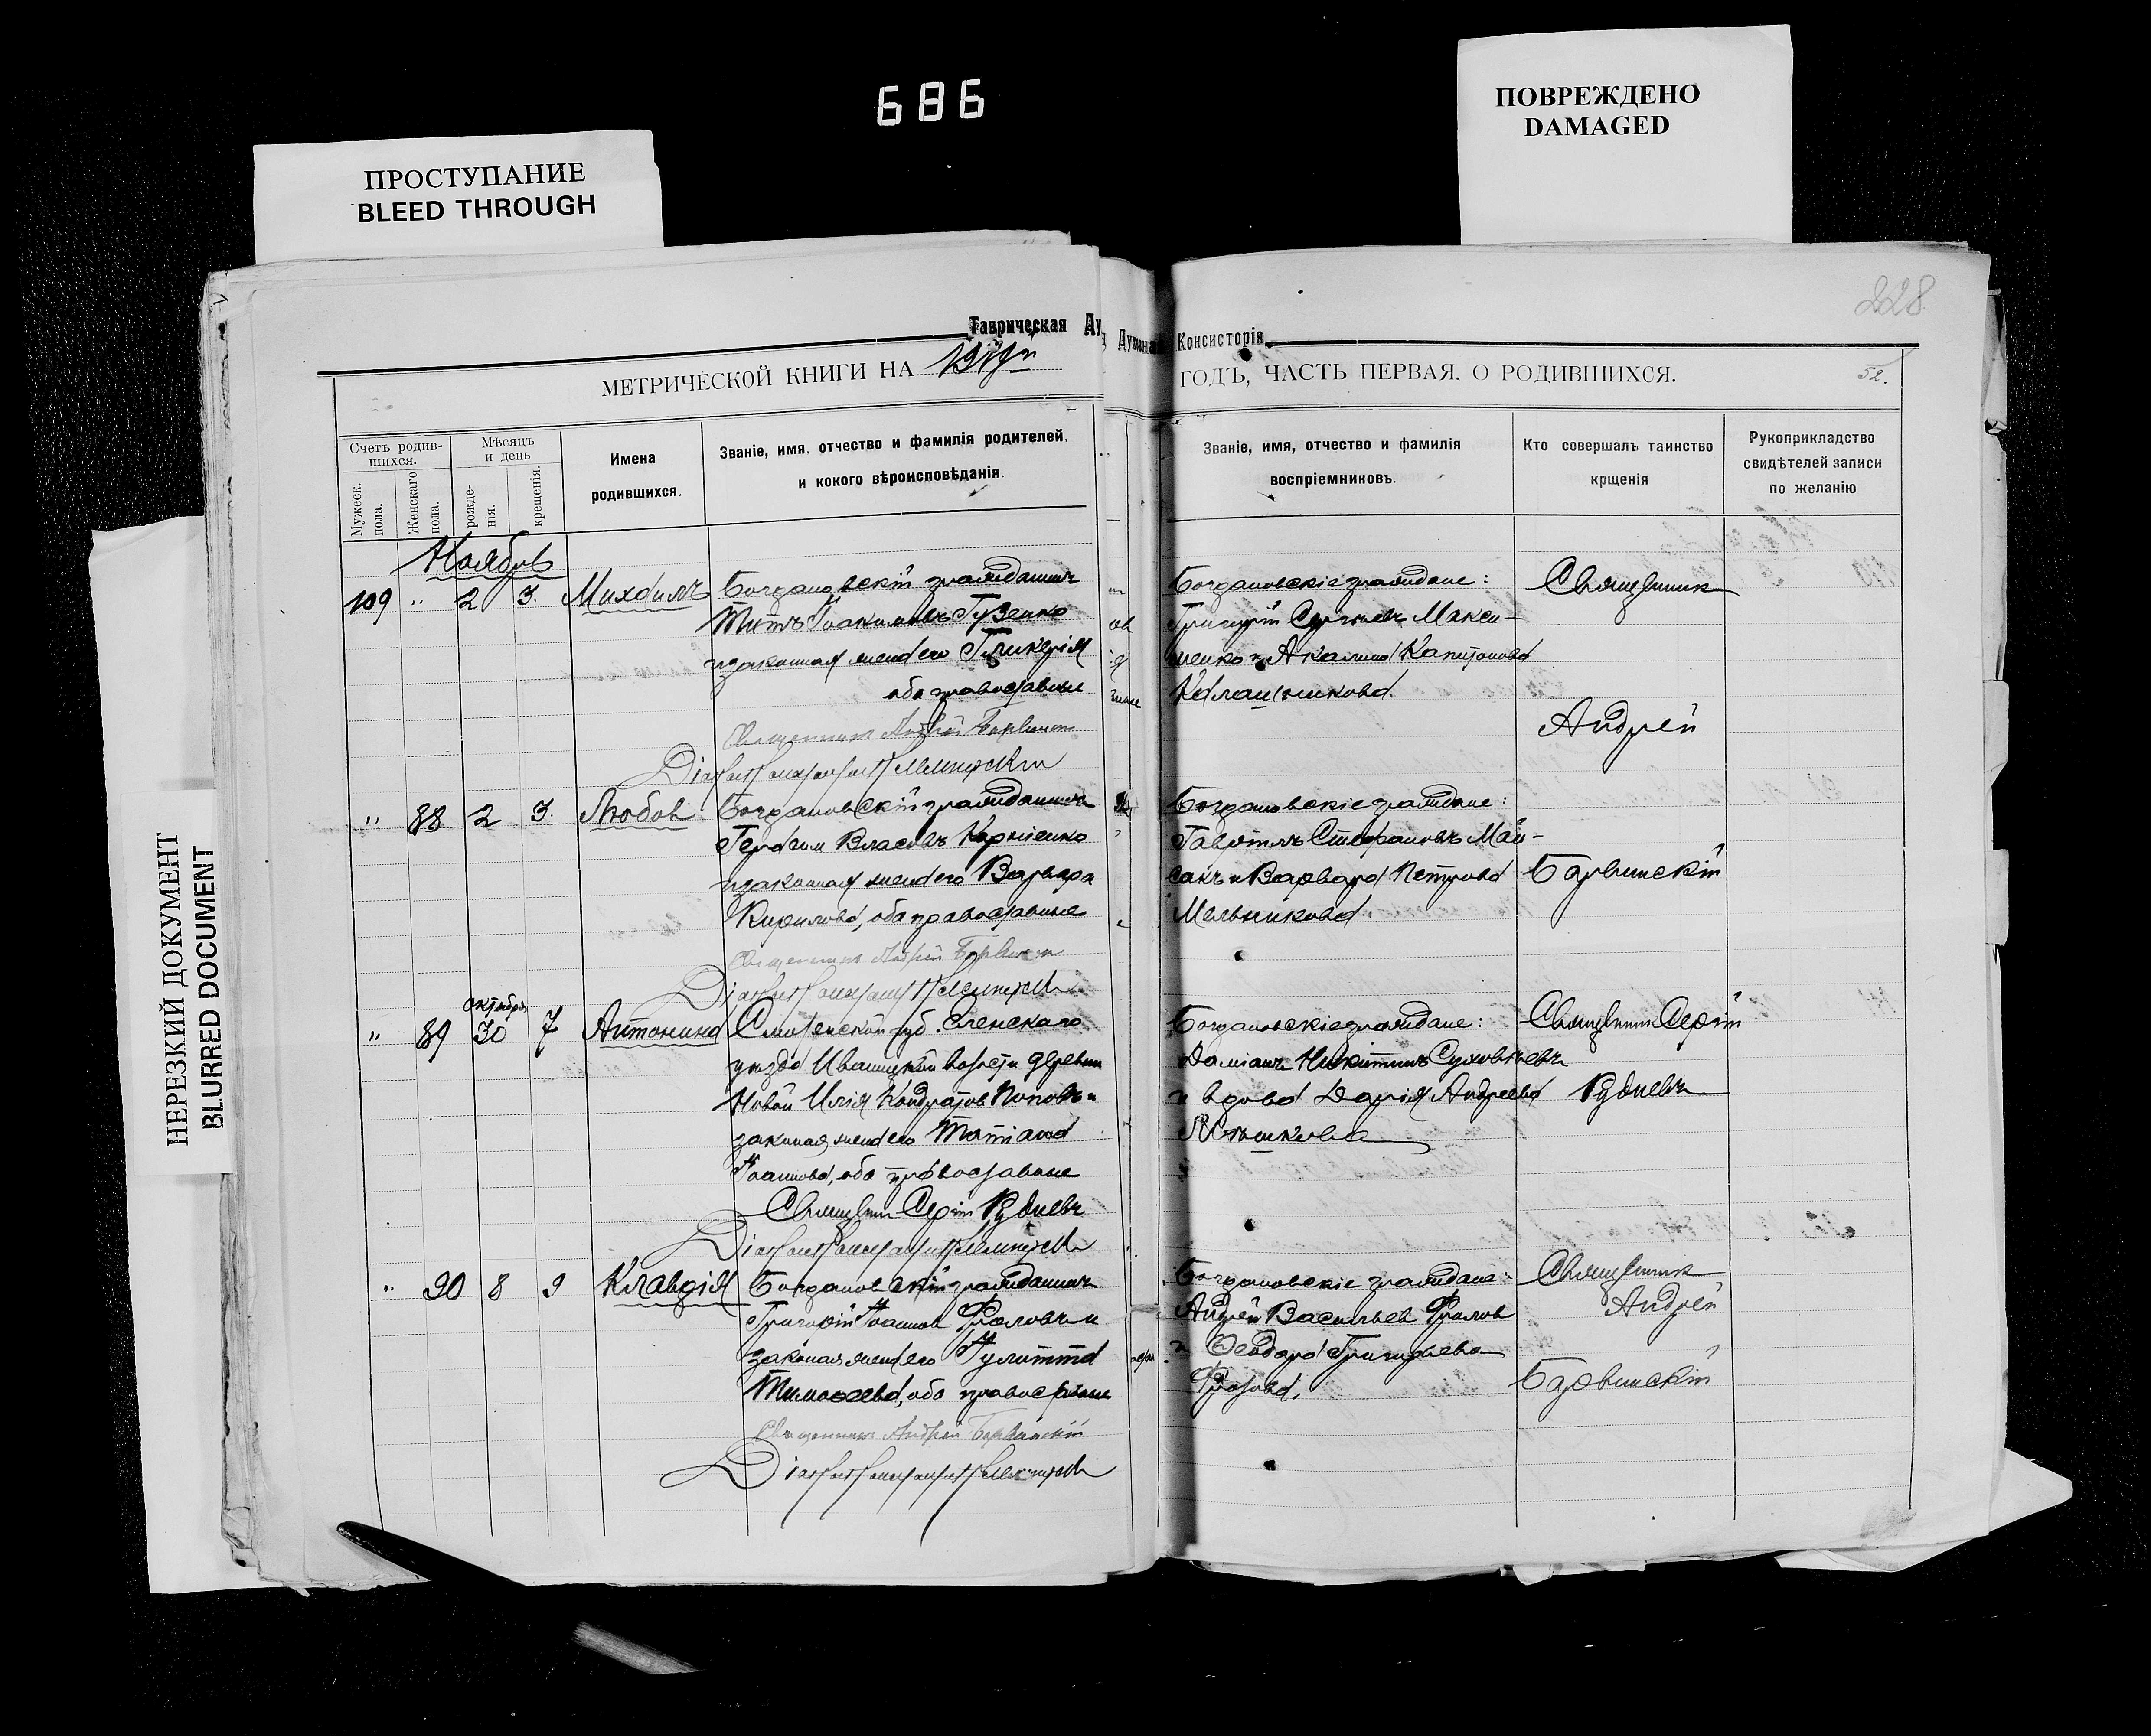 686
ПРОСТУПАНИЕ
BLEED THROUGH
ПОВРЕЖДЕНО
DAMAGED
НЕРЕЗКИЙ ДОКУМЕНТ
BLURRED DOCUMENT
228
Таврическая Ду
Духовна Консисторія
МЕТРИЧЕСКОЙ КНИГИ НА
ГОДЪ, ЧАСТЬ ПЕРВАЯ. О РОДИВШИХСЯ.
52.
Счетъ родив-
шихся.
Мужеск.
пола.
Женскаго
пола.
Мѣсяцъ
и день
рожде-
нія.
крещенія.
Имена
родившихся.
Званіе, имя, отчество и фамилія родителей,
и кокого вѣроисповѣданія.
Званіе, имя, отчество и фамилія
воспріемниковъ.
Кто совершалъ таинство
крщенія
Рукоприкладство
свидѣтелей записи
по желанію
Ноябрь
109 " 2 3. Михаилъ
Богдановскій гражданинъ
Титъ Іоакимовъ Гузенко
и законная жена его Гликерія
оба православные
Священникъ Андрей Барвинскій
Богдановскіе граждане:
Григорій Сергіевъ Макси-
менко и Акилина Капитонова
Калашникова.
Священникъ
Андрей
Барвинскій
" 88 2 3. Любовь
Богдановскій гражданинъ
Герасим Власовъ Корніенко
и законная жена его Варвара
Кирилова, оба православные
Священникъ Андрей Барвинскій
Богдановскіе граждане:
Гавріилъ Стефановъ Май-
сакъ и Варвара Петрова
Мельникова
" 89 октября 30 7 Антонина
Смоленской губ. Еленскаго
уѣзда Иваницкой волости деревни
Новой Илія Кондратов Поповъ и
законная жена его Татіана
Іоаннова, оба православные
Священник Сергій Рудневъ
Богдановскіе граждане:
Даміанъ Никитинъ Суховѣевъ
и вдова Дарія Андреева
Священник Сергій
Рудневъ
" 90 8 9 Клавдія
Богдановскій гражданинъ
Григорій Іоаннов Фроловъ и
законная жена его Іулитта
Тимофеева, оба православные
Священникъ Андрей Барвинскій
Богдановскіе граждане:
Андрей Васильев Фролов
и Феодора Григорьева
Фролова.
Священникъ
Андрей
Барвинскій